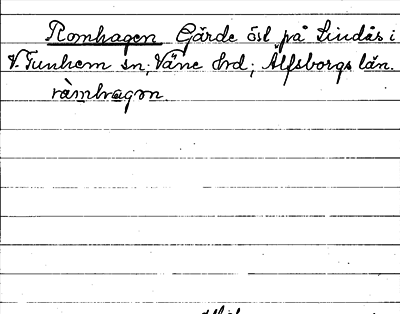 Romhagen Gärde östl på Lindås i
V. Tunhem sn; Väne hrd; Älfsborgs län.
ràmhagən.